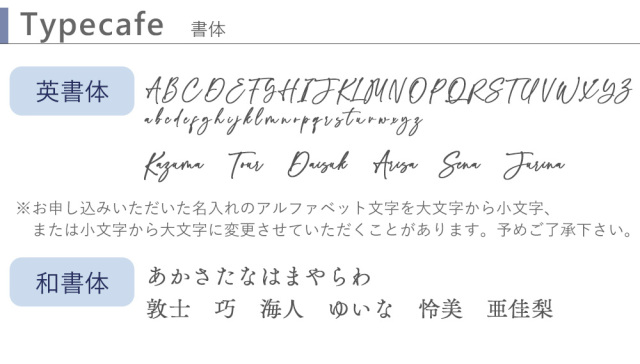 Typecafe 書体
英書体
ABCDEFGHIJKLMNOPQRSTUVWXYZ
abcdefghijklmnopqrstuvwxyz
Kazuma Tour Daisuk Arisa Sena Jurina
※お申し込みいただいた名入れのアルファベット文字を大文字から小文字、
または小文字から大文字に変更させていただくことがあります。予めご了承下さい。
和書体
あかさたなはまやらわ
敦士 巧 海人 ゆいな 怜美 亜佳梨